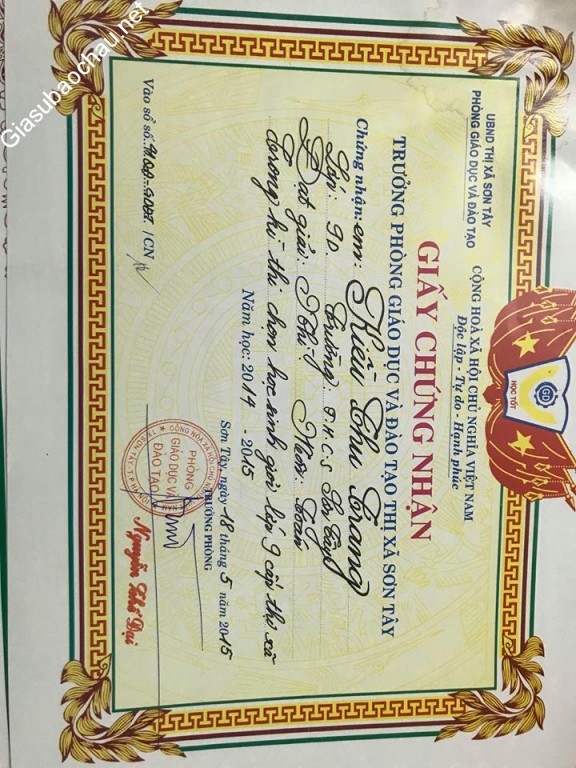 Giasubaochau.net
UBND THỊ XÃ SƠN TÂY
PHÒNG GIÁO DỤC VÀ ĐÀO TẠO
CỘNG HOÀ XÃ HỘI CHỦ NGHĨA VIỆT NAM
Độc lập - Tự do - Hạnh phúc
HỌC TỐT
GIẤY CHỨNG NHẬN
TRƯỞNG PHÒNG GIÁO DỤC VÀ ĐÀO TẠO THỊ XÃ SƠN TÂY
Chứng nhận: em: Kiều Thu Trang
Lớp: 9D. Trường T.H.C.S Sơn Tây
Đạt giải Nhì Môn: Toán
trong kì thi chọn học sinh giỏi lớp 9 cấp thị xã
Năm học: 2014 - 2015
Sơn Tây, ngày 18 tháng 5 năm 2015
TRƯỞNG PHÒNG
PHÒNG
GIÁO DỤC VÀ
ĐÀO TẠO
Nguyễn Đại
Vào sổ số: /CN